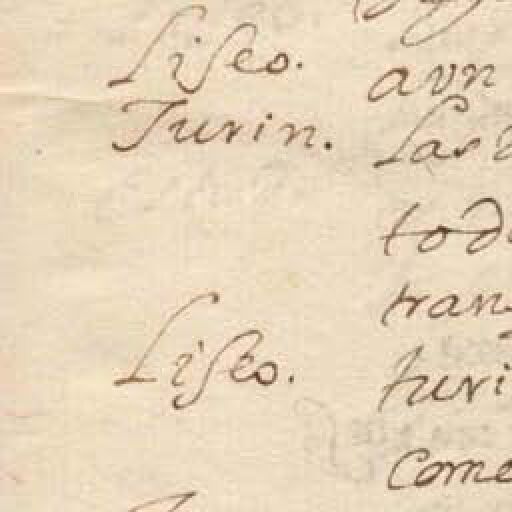 Liseo. aun
Turin. las
tod
tran
Liseo. turi
come